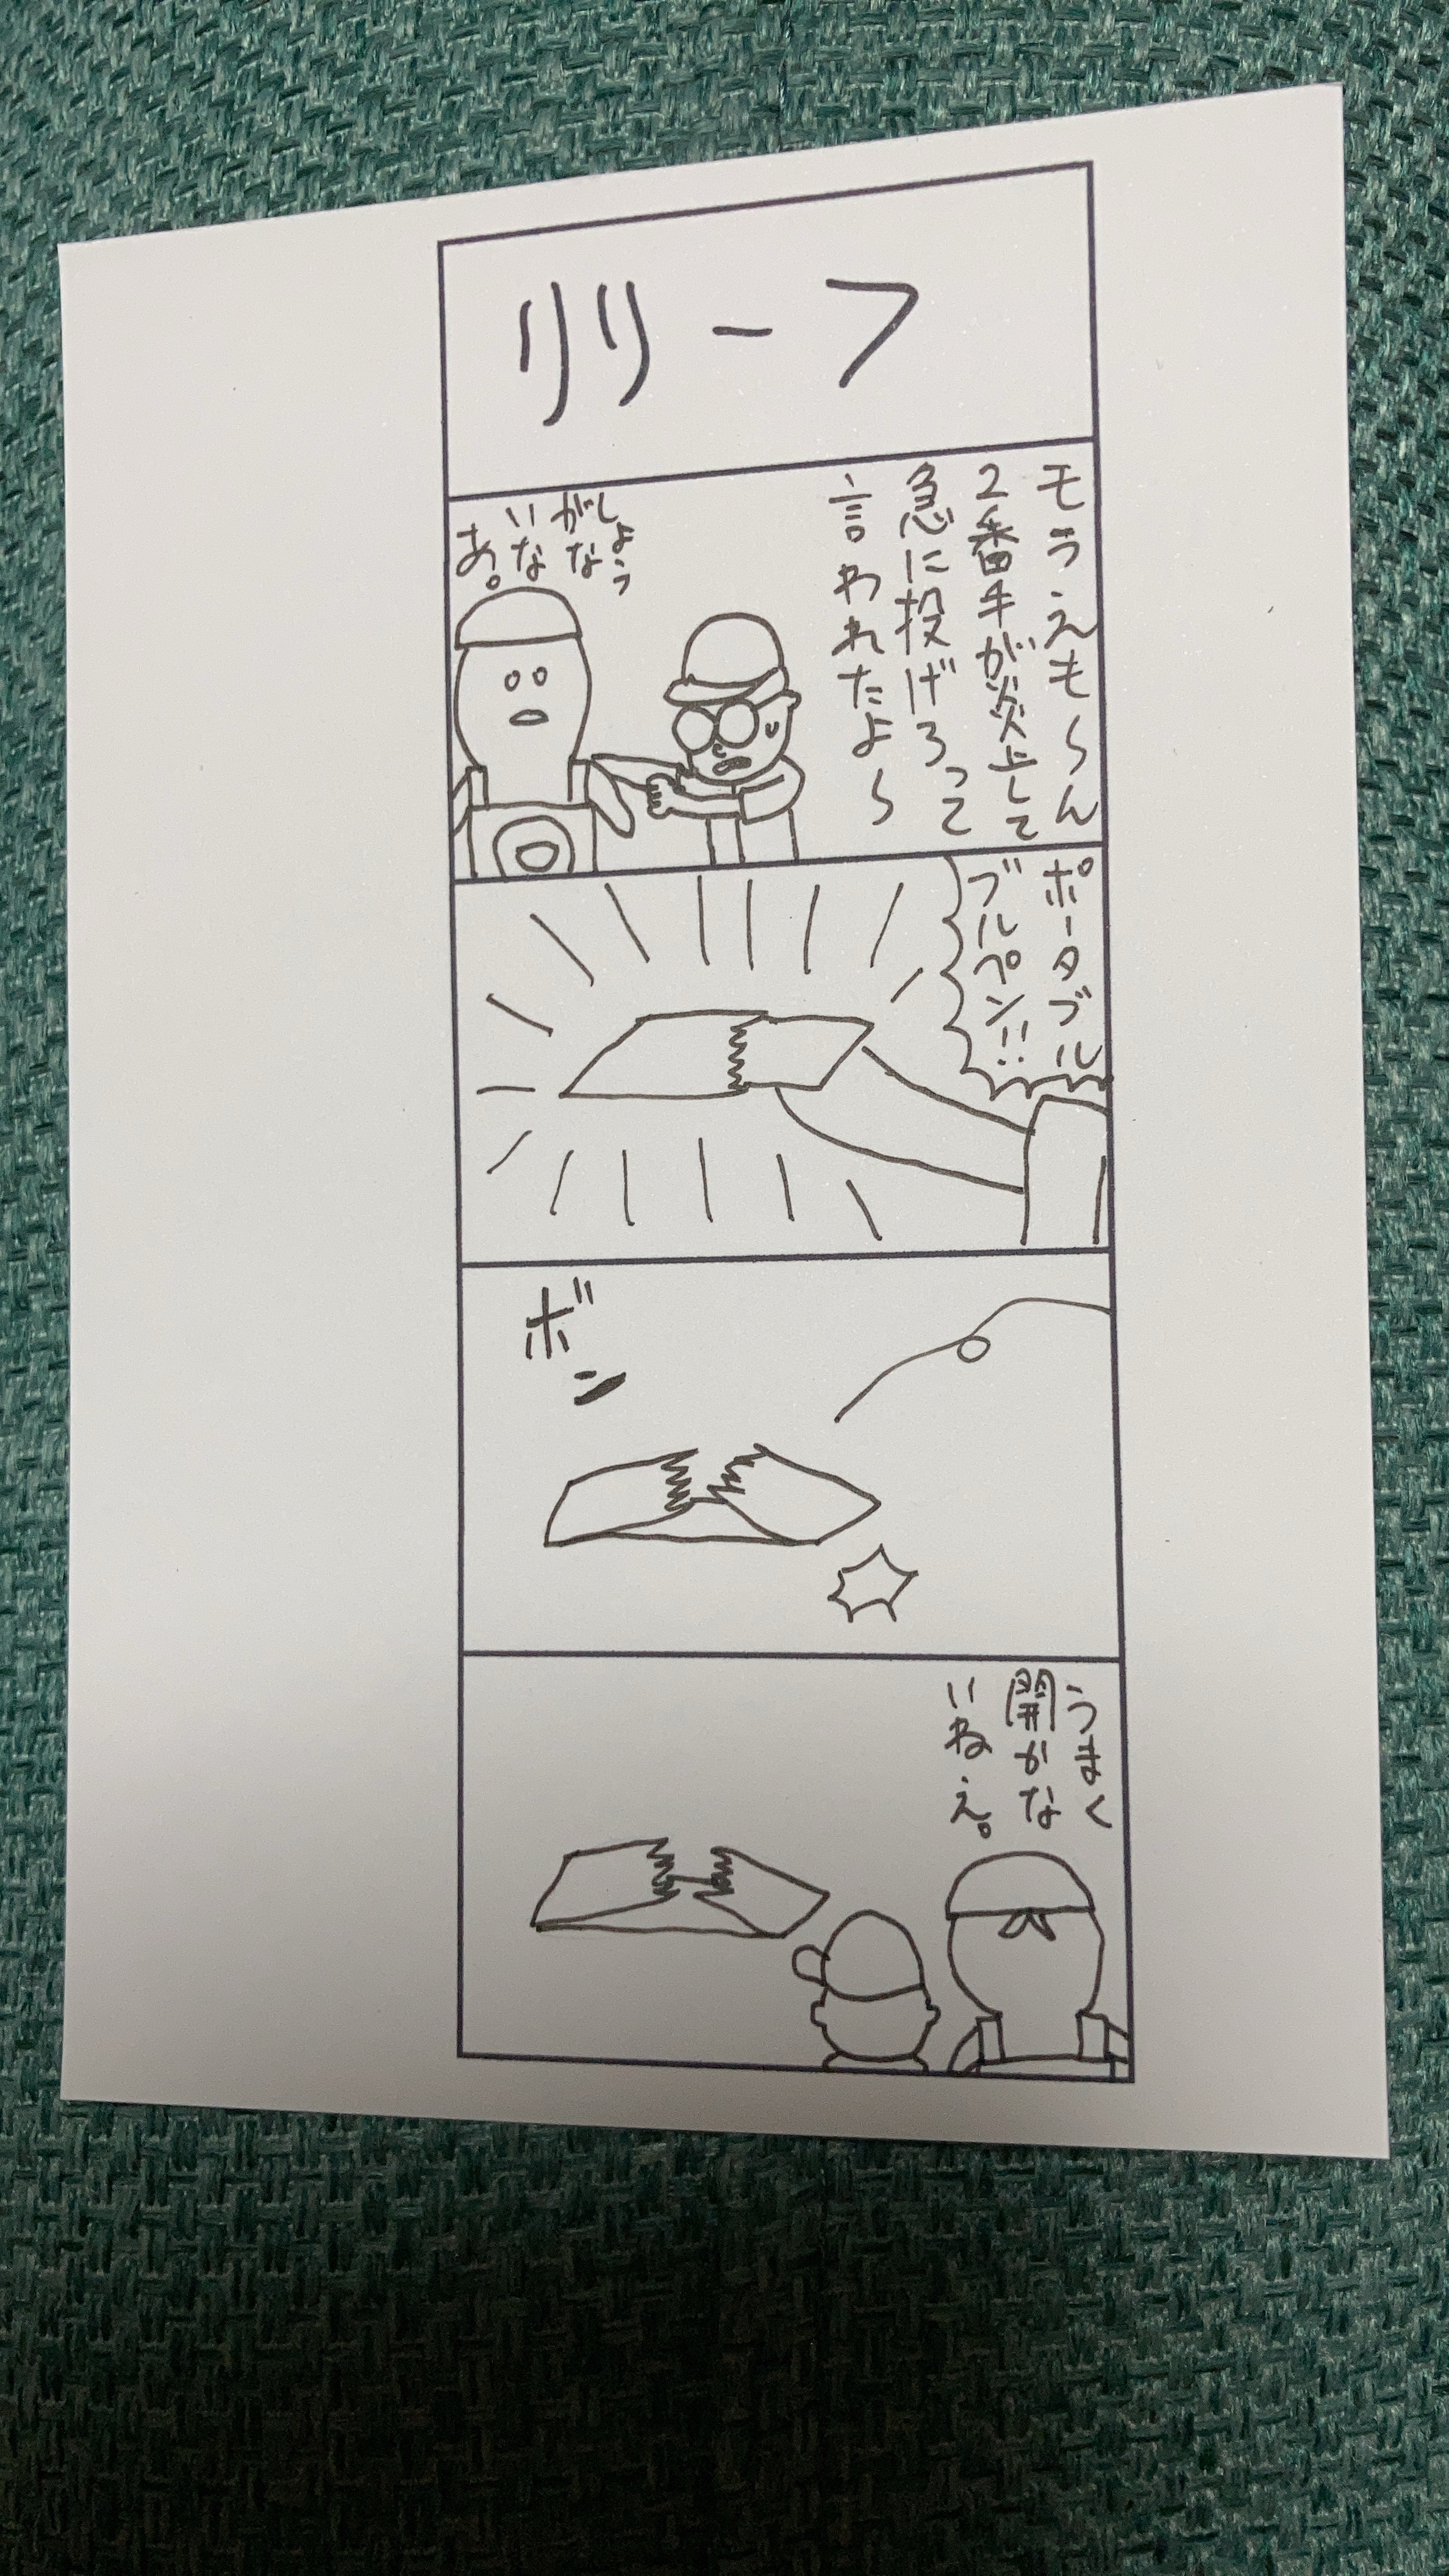 リリーフ
モラえも〜ん
2番手が炎上して
急に投げろって
言われたよ〜
しょう
がな
いな
あ。
ポータブル
ブルペン!!
ボン
うまく
開かな
いねえ。